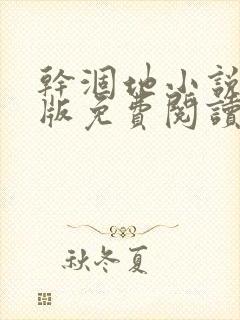 幹涸地小說
版免費閱讀
秋冬夏